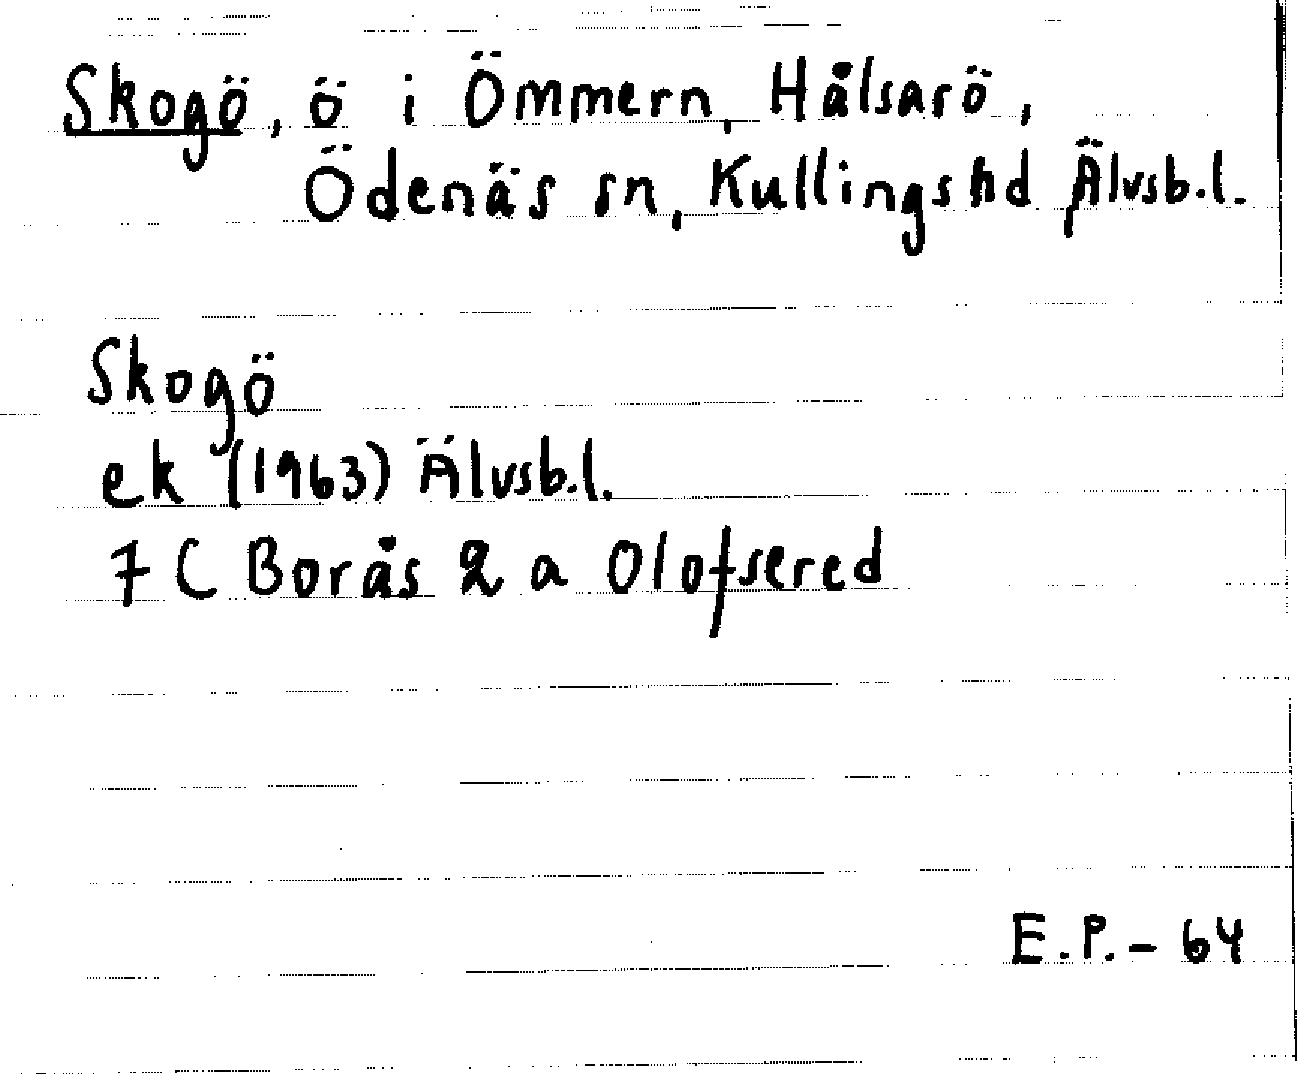 Skogö, ö i Ömmern, Hålsarö,
Ödenäs sn, Kullings hd Älvsb.l.
Skogö
ek (1963) Älvsb.l.
7 C Borås 2 a Olofsered
E.P. - 64